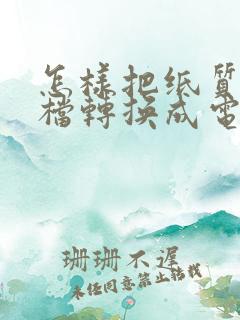 怎样把纸質
檔轉换成電
珊珊不遲
未任同意禁止转载